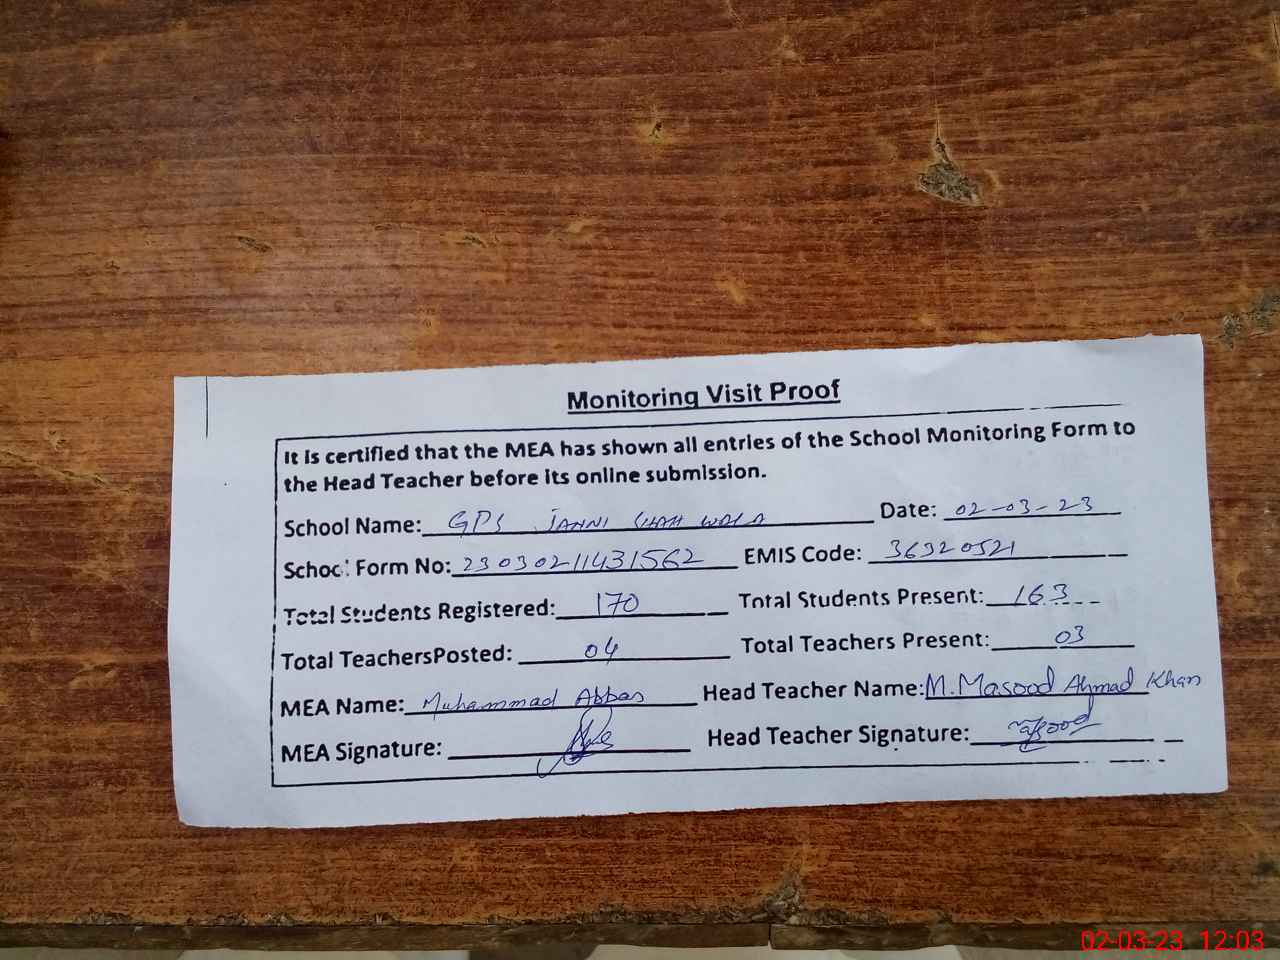 Monitoring Visit Proof
It is certified that the MEA has shown all entries of the School Monitoring Form to
the Head Teacher before its online submission.
School Name: GPS JANNI SHAH WALA Date: 02-03-23
School Form No: 23030211431562 EMIS Code: 36320521
Total Students Registered: 170 Total Students Present: 163
Total TeachersPosted: 04 Total Teachers Present: 03
MEA Name: Muhammad Abbas Head Teacher Name: M. Masood Ahmad Khan
MEA Signature: Head Teacher Signature:
02-03-23 12:03